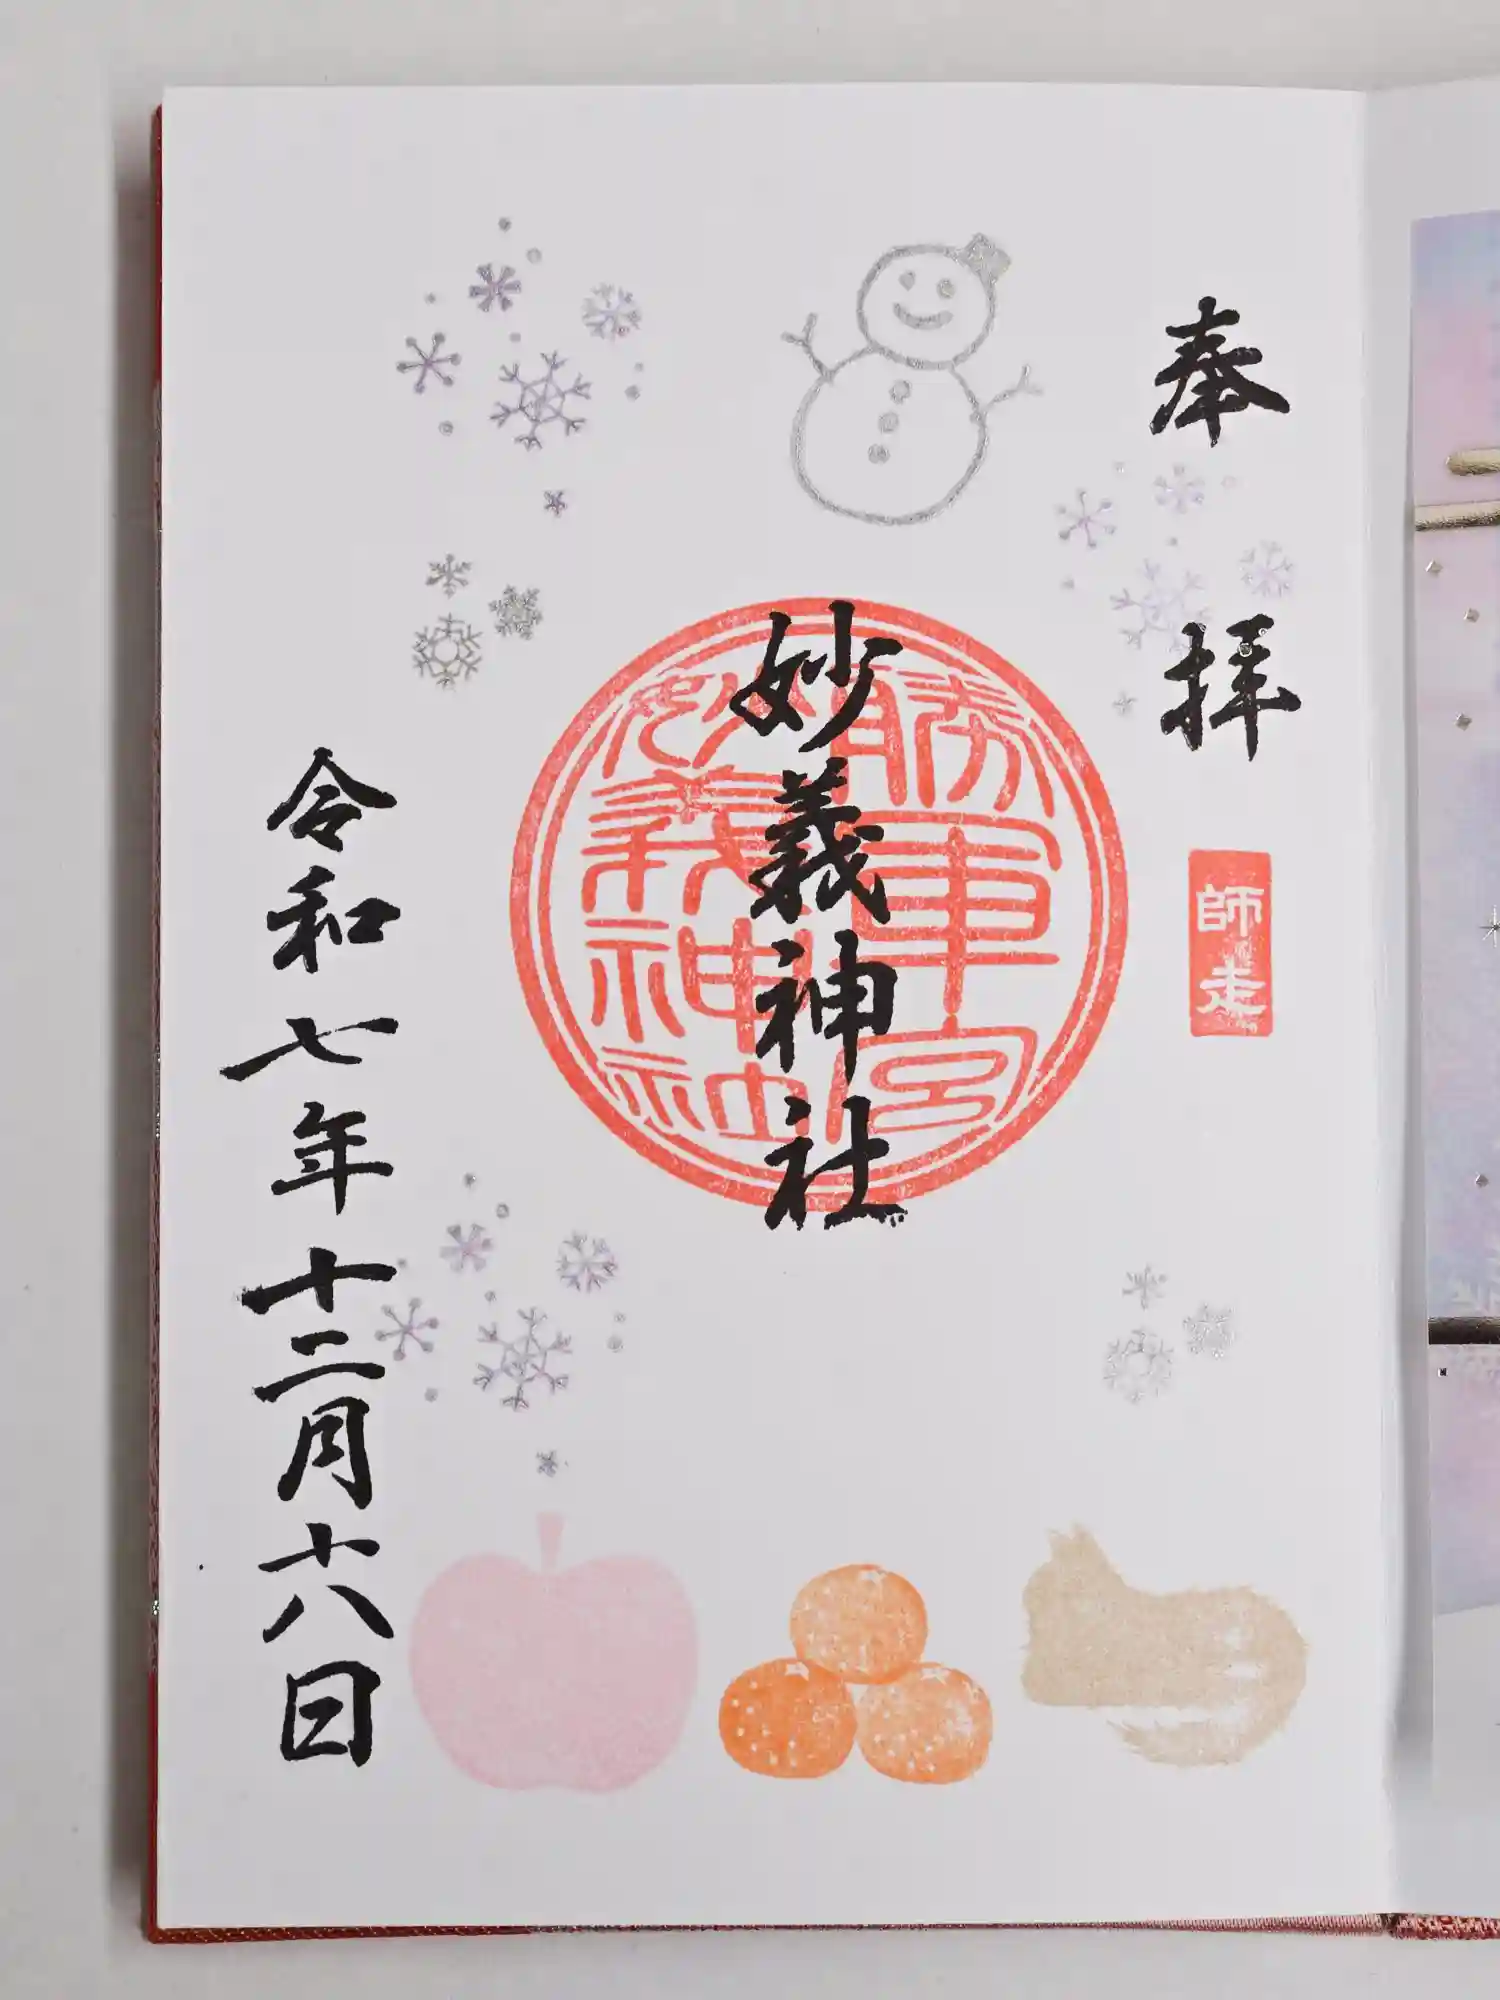 奉拝
師走
妙義神社
勝軍宮
妙義神社
令和七年十二月十八日